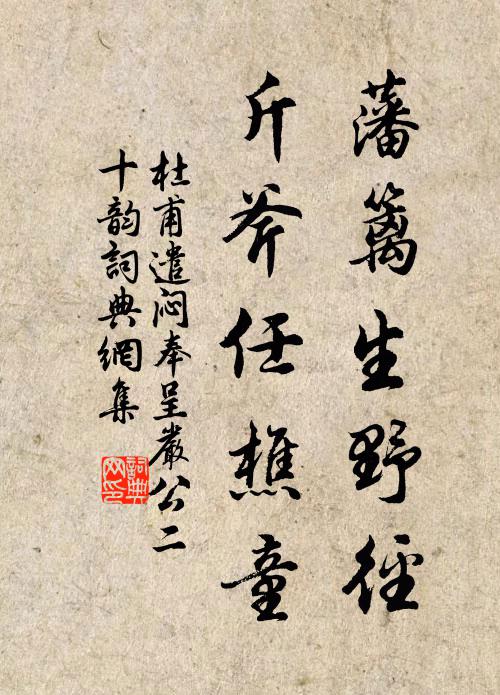 藩篱生野径
斤斧任樵童
杜甫遣闷奉呈嚴公二
十韵詞典網集
詞典网印